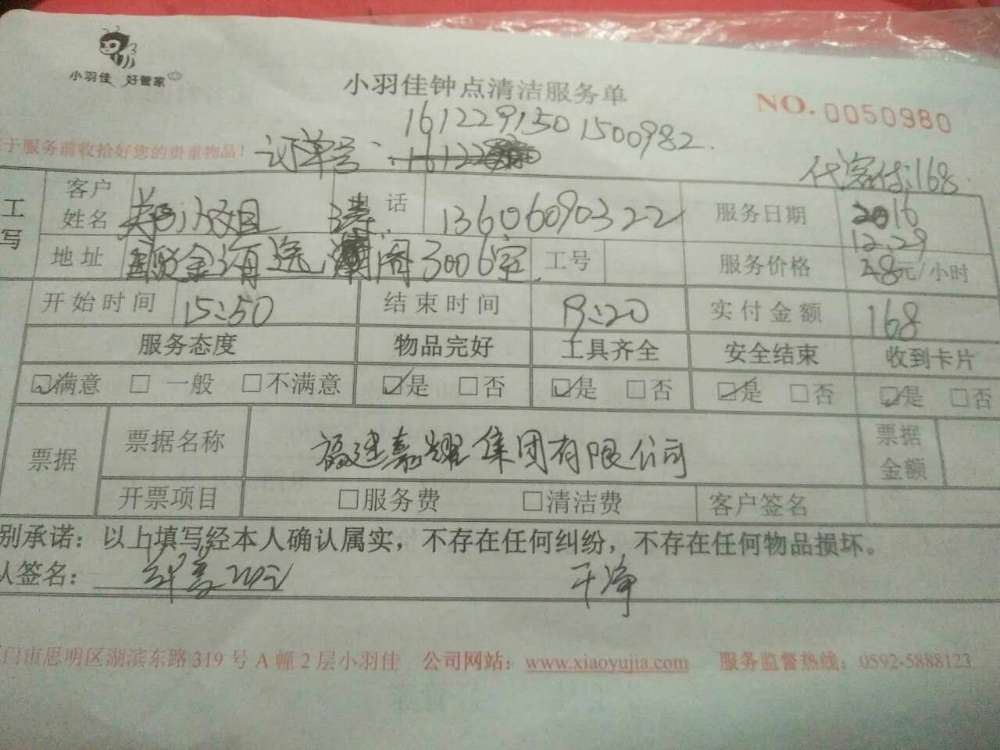 小羽佳 好管家
小羽佳钟点清洁服务单
NO.0050980
161229150 1500982
于服务前收拾好您的贵重物品!
订单号:
代客付:168
工写
客户姓名 小姐
话 13606090322
服务日期 2016 12.29
地址 3006室
工号
服务价格 28元/小时
开始时间 15:50
结束时间 19:20
实付金额 168
服务态度 物品完好 工具齐全 安全结束 收到卡片
☑满意 □一般 □不满意 ☑是 □否 ☑是 □否 ☑是 □否 ☑是 □否
票据
票据名称 福建嘉耀集团有限公司
票据金额
开票项目 □服务费 □清洁费 客户签名
别承诺:以上填写经本人确认属实,不存在任何纠纷,不存在任何物品损坏。
认签名: 干净
门市思明区湖滨东路319号A幢2层小羽佳 公司网站:www.xiaoyujia.com 服务监督热线:0592-5888123